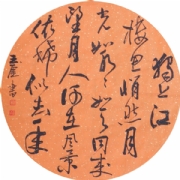 獨上江
樓思悄然月
光如水水如天同來
望月人何在風景
依稀似去年